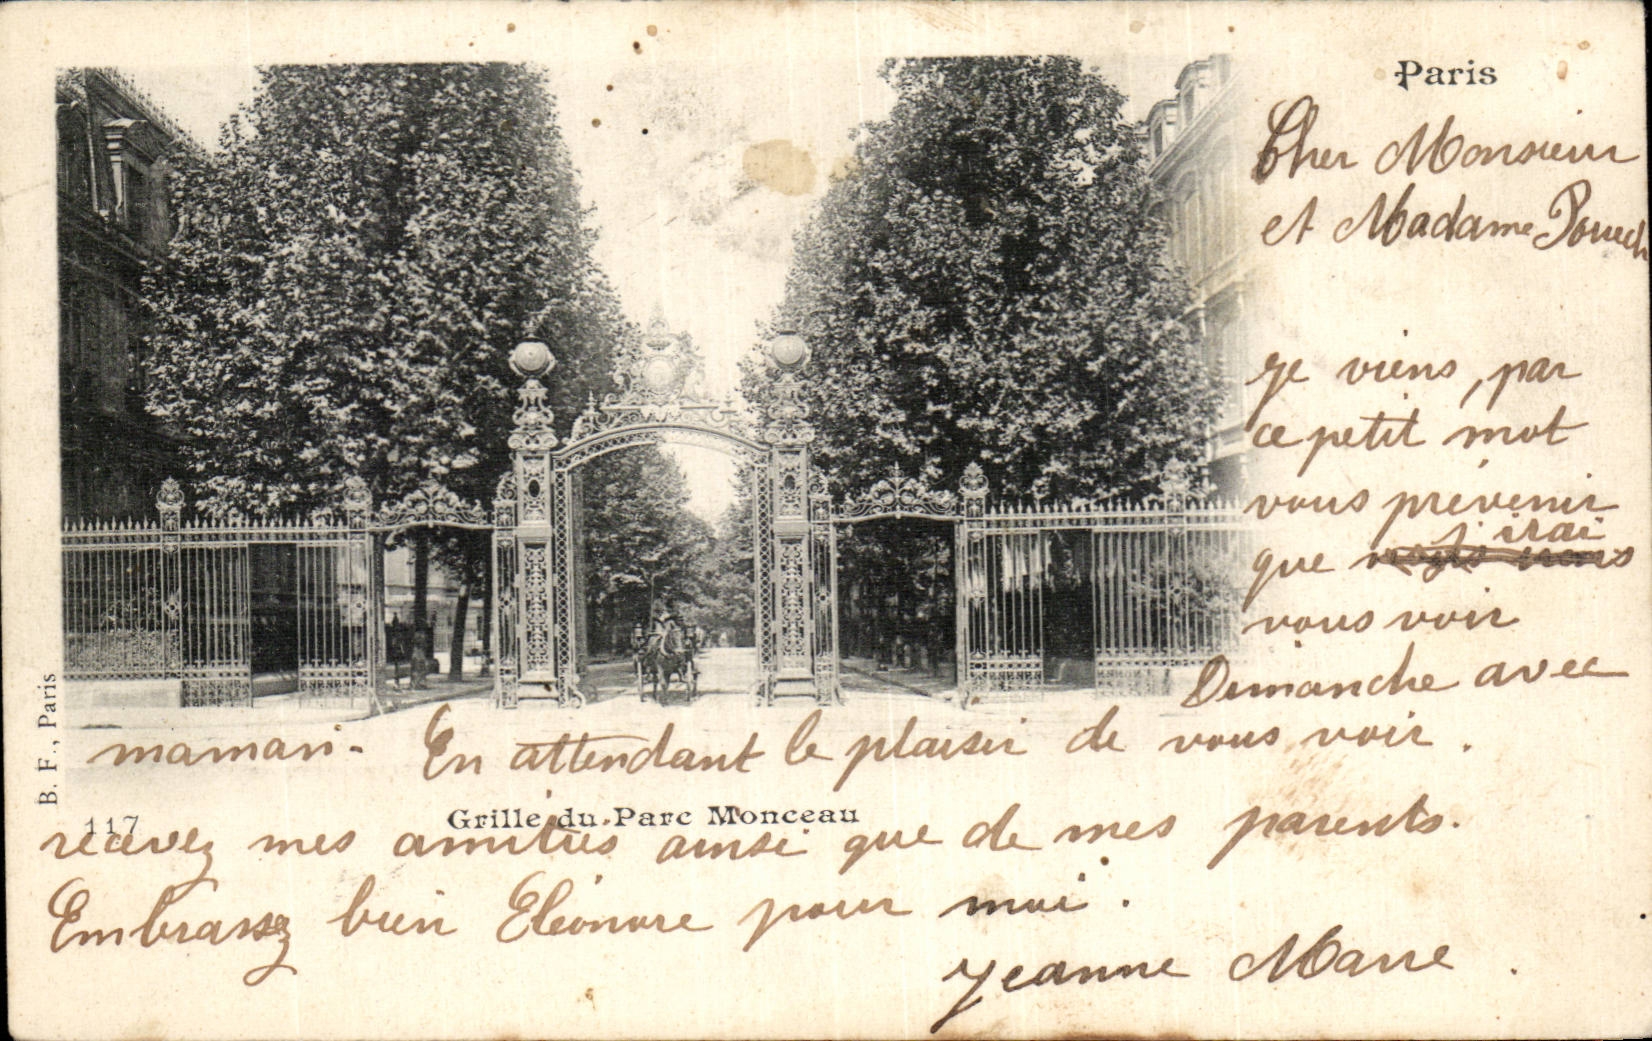 Paris
Cher Monsieur
et Madame Pouech
je viens, par
ce petit mot
vous prévenir
que j'irai
vous voir
Dimanche avec
maman. En attendant le plaisir de vous voir.
B. F., Paris
117
Grille du Parc Monceau
recevez mes amitiés ainsi que de mes parents.
Embrassez bien Eléonore pour moi.
Jeanne Marre.